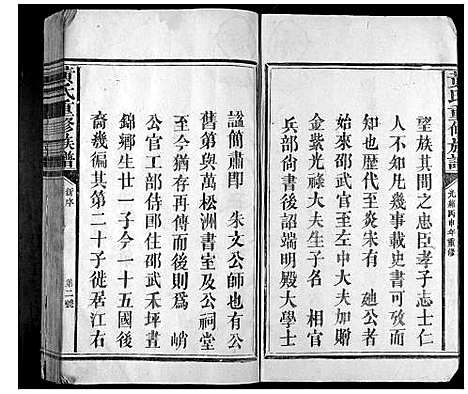 黄氏重修族譜
光緒丙申年重修
望族其間之忠臣孝子志士仁
人不知凡幾事載史書可攷而
知也歷及炎宋有 䢖公者
始來邵武官至左中大夫加贈
金紫光祿大夫生子名 相官
兵部尚書後詔端明殿大學士
謚簡肅即 朱文公師也有公
舊第與萬松洲書室及公祠堂
至今猶存再傳而後則爲 峭
公官工部侍郎住邵武禾坪晝
錦鄉生廿一子今一十五國後
裔幾徧其第二十子徙居江右
黃氏重修族譜
新序
第二號